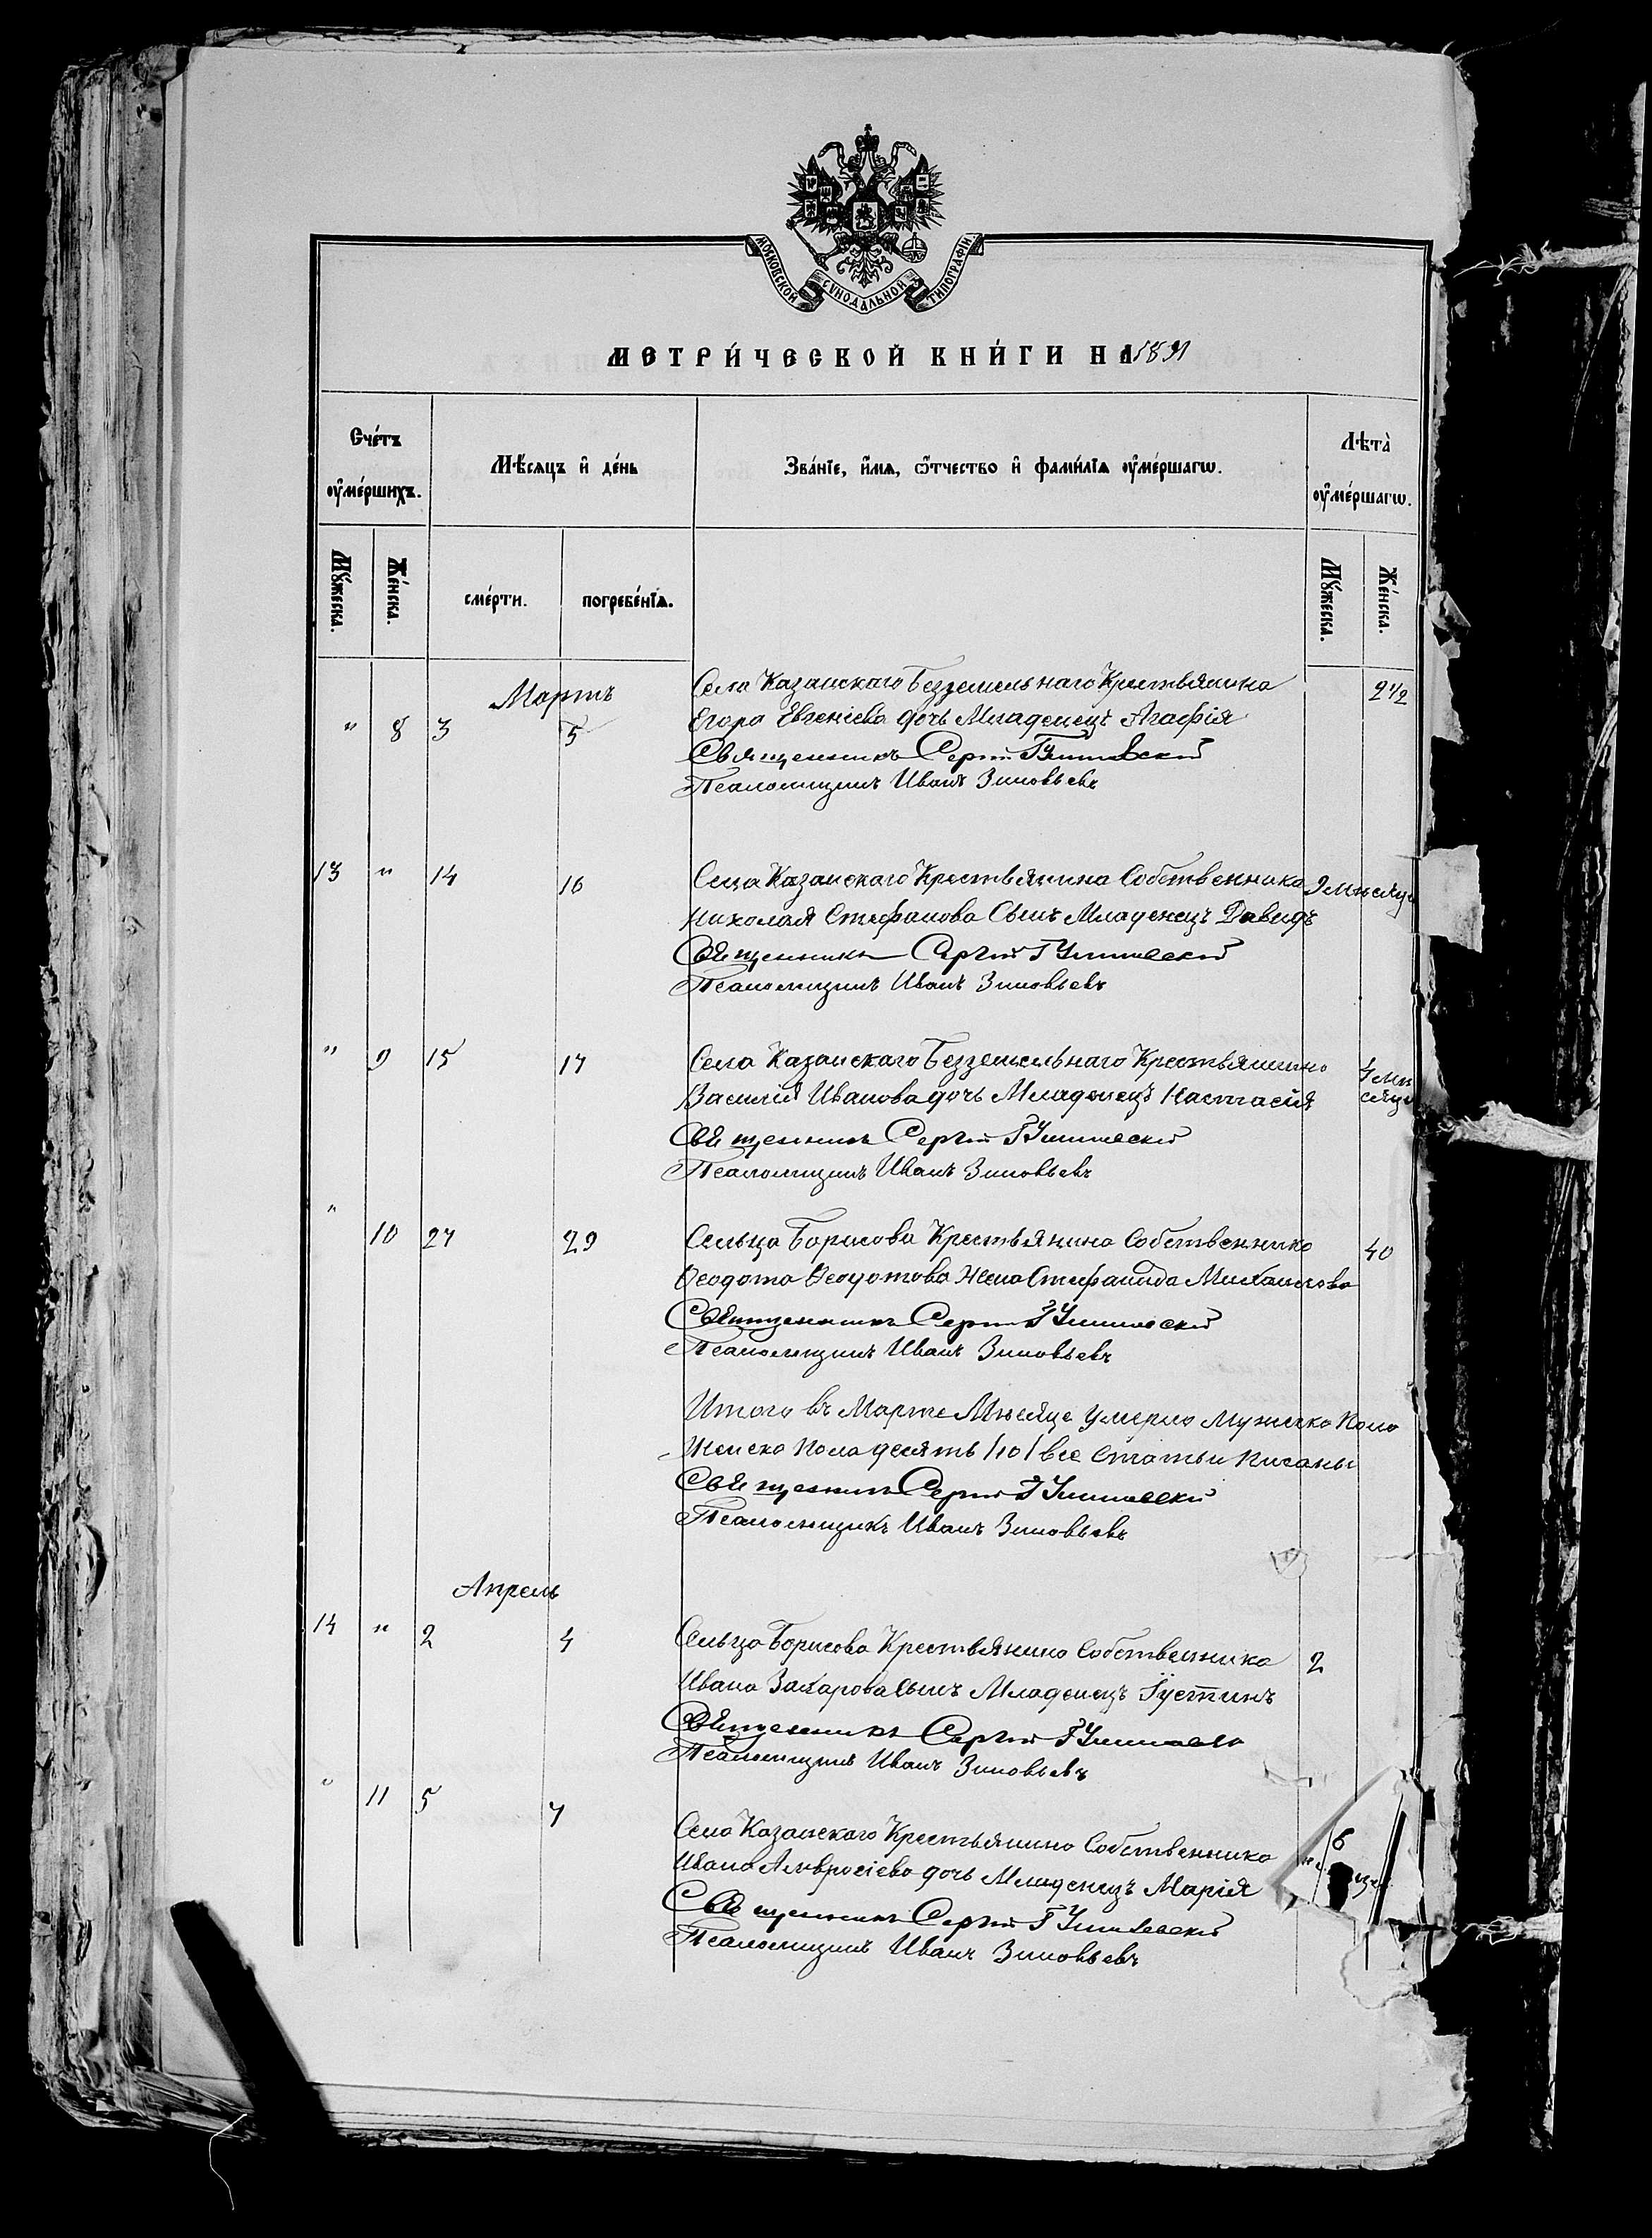 МОСКОВСКОЙ СѴНОДАЛЬНОЙ ТИПОГРАФІИ.
МЕТРИ́ЧЕСКОЙ КНИ́ГИ НА 1891
Сче́тъ ᲂу҆ме́ршихъ.
Мѣ́сяцъ и҆ де́нь
Зва́нїе, и҆́мѧ, ѻ҆́тчество и҆ фами́лїѧ ᲂу҆ме́ршагѡ.
Лѣта̀ ᲂу҆ме́ршагѡ.
Мꙋ́жеска.
Же́нска.
сме́рти.
погребе́нїѧ.
Мꙋ́жеска.
Же́нска.
Мартъ
" 8 3 5 Села Казанскаго Безземельнаго Крестьянина 2 1/2
Егора Евгеніева дочь Младенецъ Агафія
Священникъ Сергій
Псаломщикъ Иванъ Зиновьевъ
13 " 14 16 Села Казанскаго Крестьянина Собственника 9 мѣсяцъ
Николая Стефанова Сынъ Младенецъ Давидъ
Священникъ Сергій
Псаломщикъ Иванъ Зиновьевъ
" 9 15 17 Села Казанскаго Безземельнаго Крестьянина 4 мѣ
Василія Иванова дочь Младенецъ Настасія сяца
Священникъ Сергій
Псаломщикъ Иванъ Зиновьевъ
" 10 27 29 Сельца Борисова Крестьянина Собственника 40
Ѳеодота Ѳеодотова Жена Стефанида Михаилова
Священникъ Сергій
Псаломщикъ Иванъ Зиновьевъ
Итого въ Марте Мѣсяце умерло Мужеска Пола
Женска Пола десять /10/ все Статьи писаны
Священникъ Сергій
Псаломщикъ Иванъ Зиновьевъ
Апрель
14 " 2 4 Сельца Борисова Крестьянина Собственника 2
Ивана Захарова Сынъ Младенецъ Іустинъ
Священникъ Сергій
Псаломщикъ Иванъ Зиновьевъ
" 11 5 7 Села Казанскаго Крестьянина Собственника 6
Ивана Амвросіева дочь Младенецъ Марія
Священникъ Сергій
Псаломщикъ Иванъ Зиновьевъ